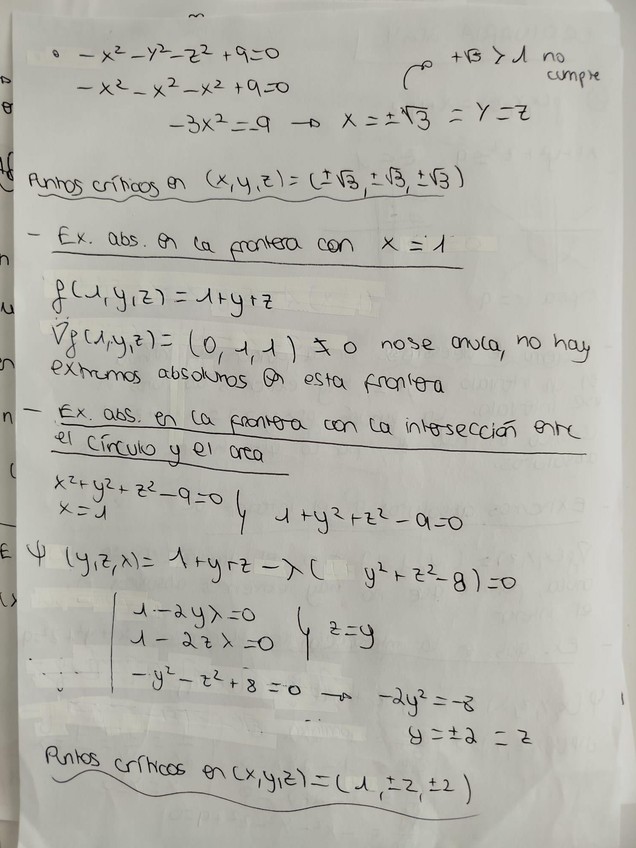 - x² - y² - z² + 9 = 0
+√3 > 1 no cumple
- x² - x² - x² + 9 = 0
- 3x² = -9 → x = ±√3 = y = z
Puntos críticos en (x, y, z) = (±√3, ±√3, ±√3)
- Ex. abs. en la frontera con x = 1
f(1, y, z) = 1 + y + z
∇f(1, y, z) = (0, 1, 1) ≠ 0 no se anula, no hay
extremos absolutos en esta frontera
- Ex. abs. en la frontera con la intersección entre
el círculo y el area
x² + y² + z² - 9 = 0
x = 1
1 + y² + z² - 9 = 0
Ψ (y, z, λ) = 1 + y + z - λ( y² + z² - 8) = 0
1 - 2yλ = 0
1 - 2zλ = 0
z = y
- y² - z² + 8 = 0 → -2y² = -8
y = ±2 = z
Puntos críticos en (x, y, z) = (1, ±2, ±2)